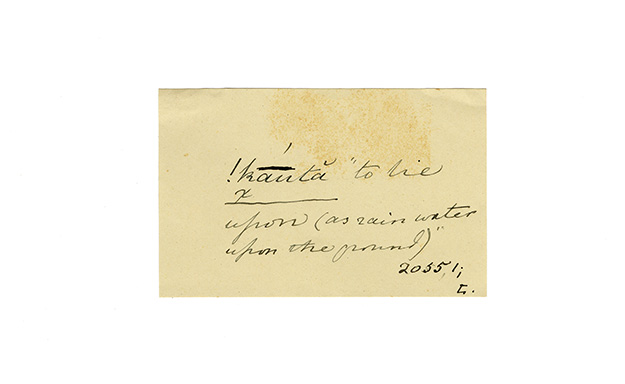 !kā́ută "to lie
x
upon (as rain water
upon the ground)"
2055,1;
L.